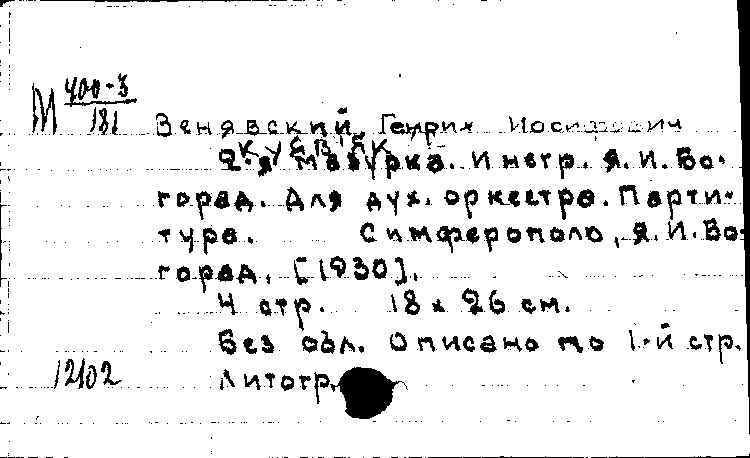 М 400-3/181
Венявский, Генрих Иосифович
Куявяк
2-я мазурка. Инстр. Я. И. Бо-
город. Для дух. оркестра. Парти-
тура. Симферополь, Я. И. Бо-
город, [1930].
4 стр. 18 x 26 см.
Без обл. Описано по 1-й стр.
12102 Литогр.